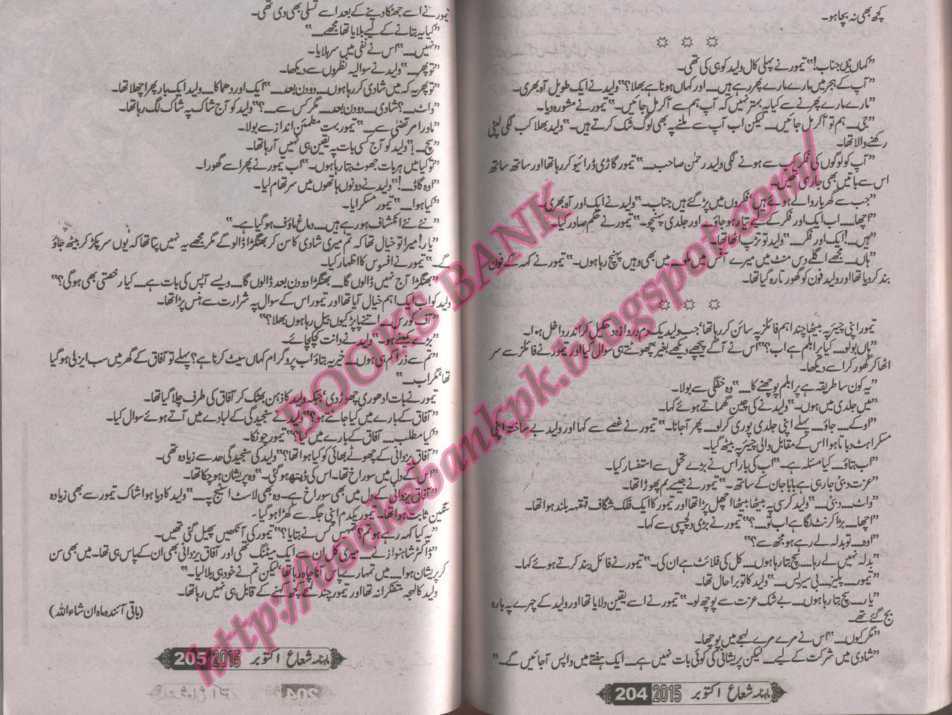 کچھ بھی نہ بچا ہو۔
☼ ☼ ☼
"کہاں ہیں جناب!" تیمور نے پہلی کال ولید کو ہی کی تھی۔
"آپ کے ہجر میں مارے مارے پھر رہے ہیں۔ اور کہاں ہونا ہے بھلا؟" ولید نے ایک طویل آہ بھری۔
"مارے مارے پھرنے سے کیا یہ بہتر نہیں کہ آپ ہم سے آکر مل جائیں۔" تیمور نے مشورہ دیا۔
"جی... ہم تو آکر مل جائیں... لیکن اب آپ سے ملنے پہ بھی لوگ شک کرتے ہیں۔" ولید بھلا کب لگی لپٹی
رکھنے والا تھا۔
"آپ کو لوگوں کی فکر کب سے ہونے لگی ولید رحمٰن صاحب..." تیمور گاڑی ڈرائیو کر رہا تھا اور ساتھ ساتھ
اس سے باتیں بھی جاری تھیں۔
"جب سے گھر بار والے ہوئے ہیں فکروں میں پڑ گئے ہیں جناب۔" ولید نے ایک اور آہ بھری۔
"اچھا... اب ایک اور فکر کے لیے تیار ہو جاؤ... اور جلدی پہنچو۔" تیمور نے حکم صادر کیا۔
"ہیں...! ایک اور فکر..." ولید تو تڑپ اٹھا تھا۔
"ہاں... مجھے اگلے دس منٹ میں میرے آفس میں ملو... میں بھی وہیں پہنچ رہا ہوں۔" تیمور نے کہہ کے فون
بند کر دیا تھا اور ولید فون کو گھورتا رہ گیا تھا۔
☼ ☼ ☼
تیمور اپنی چیئر پہ بیٹھا چند اہم فائلز پہ سائن کر رہا تھا جب ولید یک دم دروازہ دھکیل کر اندر داخل ہوا۔
"ہاں بولو... کیا پرابلم ہے اب؟" اس نے آگے پیچھے دیکھے بغیر چھوٹتے ہی سوال کیا اور تیمور نے فائلز سے سر
اٹھا کر گھور کر اسے دیکھا۔
"یہ کون سا طریقہ ہے پرابلم پوچھنے کا..." وہ خفگی سے بولا۔
"میں جلدی میں ہوں۔" ولید نے کی چین گھماتے ہوئے کہا۔
"اوکے... جاؤ... پہلے اپنی جلدی پوری کر لو... پھر آ جانا۔" تیمور نے غصے سے کہا اور ولید بے ساختہ اپنی
مسکراہٹ دباتا ہوا اس کے مقابل والی چیئر پہ بیٹھ گیا۔
"اب بتاؤ... کیا مسئلہ ہے..." اب کی بار اس نے بڑے تحمل سے استفسار کیا۔
"عزت دبئی جا رہی ہے بابا جان کے ساتھ۔" تیمور نے جیسے بم پھوڑا تھا۔
"واٹ... دبئی..." ولید کرسی پہ بیٹھا بیٹھا اچھل پڑا تھا اور تیمور کا ایک فلک شگاف قہقہہ بلند ہوا تھا۔
"اچھا... بڑا کرنٹ لگا ہے اب تو...؟" تیمور نے بڑی دلچسپی سے کہا۔
"اوہ تو بدلہ لے رہے ہو مجھ سے؟"
"بدلہ نہیں لے رہا... سچ بتا رہا ہوں... کل کی فلائٹ ہے ان کی۔" تیمور نے فائل بند کرتے ہوئے کہا۔
"تیمور... پلیز... بی سیریس..." ولید کا تو برا حال تھا۔
"یار... سچ بتا رہا ہوں... بے شک عزت سے پوچھ لو۔" تیمور نے اسے یقین دلایا تھا اور ولید کے چہرے پہ بارہ
بج گئے تھے۔
"مگر کیوں..." اس نے مرے مرے لہجے میں پوچھا۔
"شادی میں شرکت کے لیے... لیکن پریشانی کی کوئی بات نہیں ہے... ایک ہفتے میں واپس آجائیں گے۔"
ماہنامہ شعاع اکتوبر 2015 204
تیمور نے اسے جھٹکا دینے کے بعد اسے تسلی بھی دی تھی۔
"کیا یہ بتانے کے لیے بلایا تھا مجھے..."
"نہیں..." اس نے نفی میں سر ہلایا۔
"تو پھر..." ولید نے سوالیہ نظروں سے دیکھا۔
"تو پھر یہ کہ میں شادی کر رہا ہوں... دو دن بعد..." ایک اور دھماکا... ولید ایک بار پھر اچھلا تھا۔
"واٹ...؟ شادی... دو دن بعد... مگر کس سے...؟" ولید کو آج شاک پہ شاک لگ رہا تھا۔
"ماورا مرتضیٰ سے..." تیمور بہت مطمئن انداز سے بولا۔
"سچ...!" ولید کو آج کسی بات پہ یقین ہی نہیں آ رہا تھا۔
"تو کیا میں ہر بات جھوٹ بتا رہا ہوں۔" اب تیمور نے پھر اسے گھورا۔
"اوہ گاڈ...!" ولید نے دونوں ہاتھوں میں سر تھام لیا۔
"کیا ہوا..." تیمور مسکرایا۔
"نئے نئے انکشاف ہو رہے ہیں... دماغ ماؤف ہو گیا ہے۔"
"یار! میرا تو خیال تھا کہ تم میری شادی کا سن کر بھنگڑا ڈالو گے مگر مجھے یہ نہیں پتا تھا کہ یوں سر پکڑ کر بیٹھ جاؤ
گے۔" تیمور نے افسوس کا اظہار کیا۔
"بھنگڑا آج نہیں ڈالوں گا... بھنگڑا دو دن بعد ڈالوں گا... ویسے آپس کی بات ہے... کیا رخصتی بھی ہوگی؟"
ولید کو اب ایک اہم خیال آیا تھا اور تیمور اس کے سوال پہ شرارت سے ہنس پڑا تھا۔
"آف کورس... اتنے پاپڑ کیوں بیل رہا ہوں بھلا؟"
"بڑے کمینے ہو۔" ولید نے دانت کچکچائے۔
"تم سے ذرا کم ہی ہوں... خیر یہ بتاؤ اب پروگرام کہاں سیٹ کرنا ہے؟ پہلے تو آفاق کے گھر میں سب ایزلی ہو گیا
تھا مگر اب..."
تیمور نے بات ادھوری چھوڑ دی، جبکہ ولید کا ذہن بھٹک کر آفاق کی طرف چلا گیا تھا۔
"آفاق کے بارے میں کیا جانتے ہو؟" ولید نے سنجیدگی کے لبادے میں آتے ہوئے سوال کیا۔
"کیا مطلب... آفاق کے بارے میں کیا؟" تیمور چونکا۔
"آفاق یزدانی کے چھوٹے بھائی کو کیا ہوا تھا؟" ولید کی سنجیدگی حد سے زیادہ تھی۔
"اس کے دل میں سوراخ تھا... اس کی ڈیتھ ہو گئی۔" وہ پریشان ہو چکا تھا۔
"تو آفاق یزدانی کے دل میں بھی سوراخ ہے... وہ بھی لاسٹ اسٹیج پہ..." ولید کا دیا ہوا شاک تیمور سے بھی زیادہ
سنگین ثابت ہوا تھا۔ تیمور یکدم اپنی جگہ سے کھڑا ہو گیا۔
"یہ کیا کہہ رہے ہو تم... تمہیں کس نے بتایا؟" تیمور کی آنکھیں پھیل گئی تھیں۔
"ڈاکٹر شاہنواز نے... میری کل ان سے ایک میٹنگ تھی اور آفاق یزدانی بھی ان کے پاس ہی تھا۔ میں بھی سن
کر پریشان ہوا... میں تمہارے پاس آنا چاہ رہا تھا لیکن تم نے خود ہی بلا لیا۔"
ولید کا لہجہ متفکرانہ تھا اور تیمور چند لمحے کچھ کہنے کے قابل ہی نہیں رہا تھا۔
(باقی آئندہ ماہ ان شاء اللہ)
ماہنامہ شعاع اکتوبر 2015 205
BOOKS BANK
http://booksbankpk.blogspot.com/